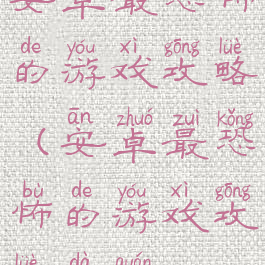 安卓最恐怖
de yóu xì gōng lüè
的游戏攻略
ān zhuó zuì kǒng
(安卓最恐
bù de yóu xì gōng
怖的游戏攻
lüè dà quán